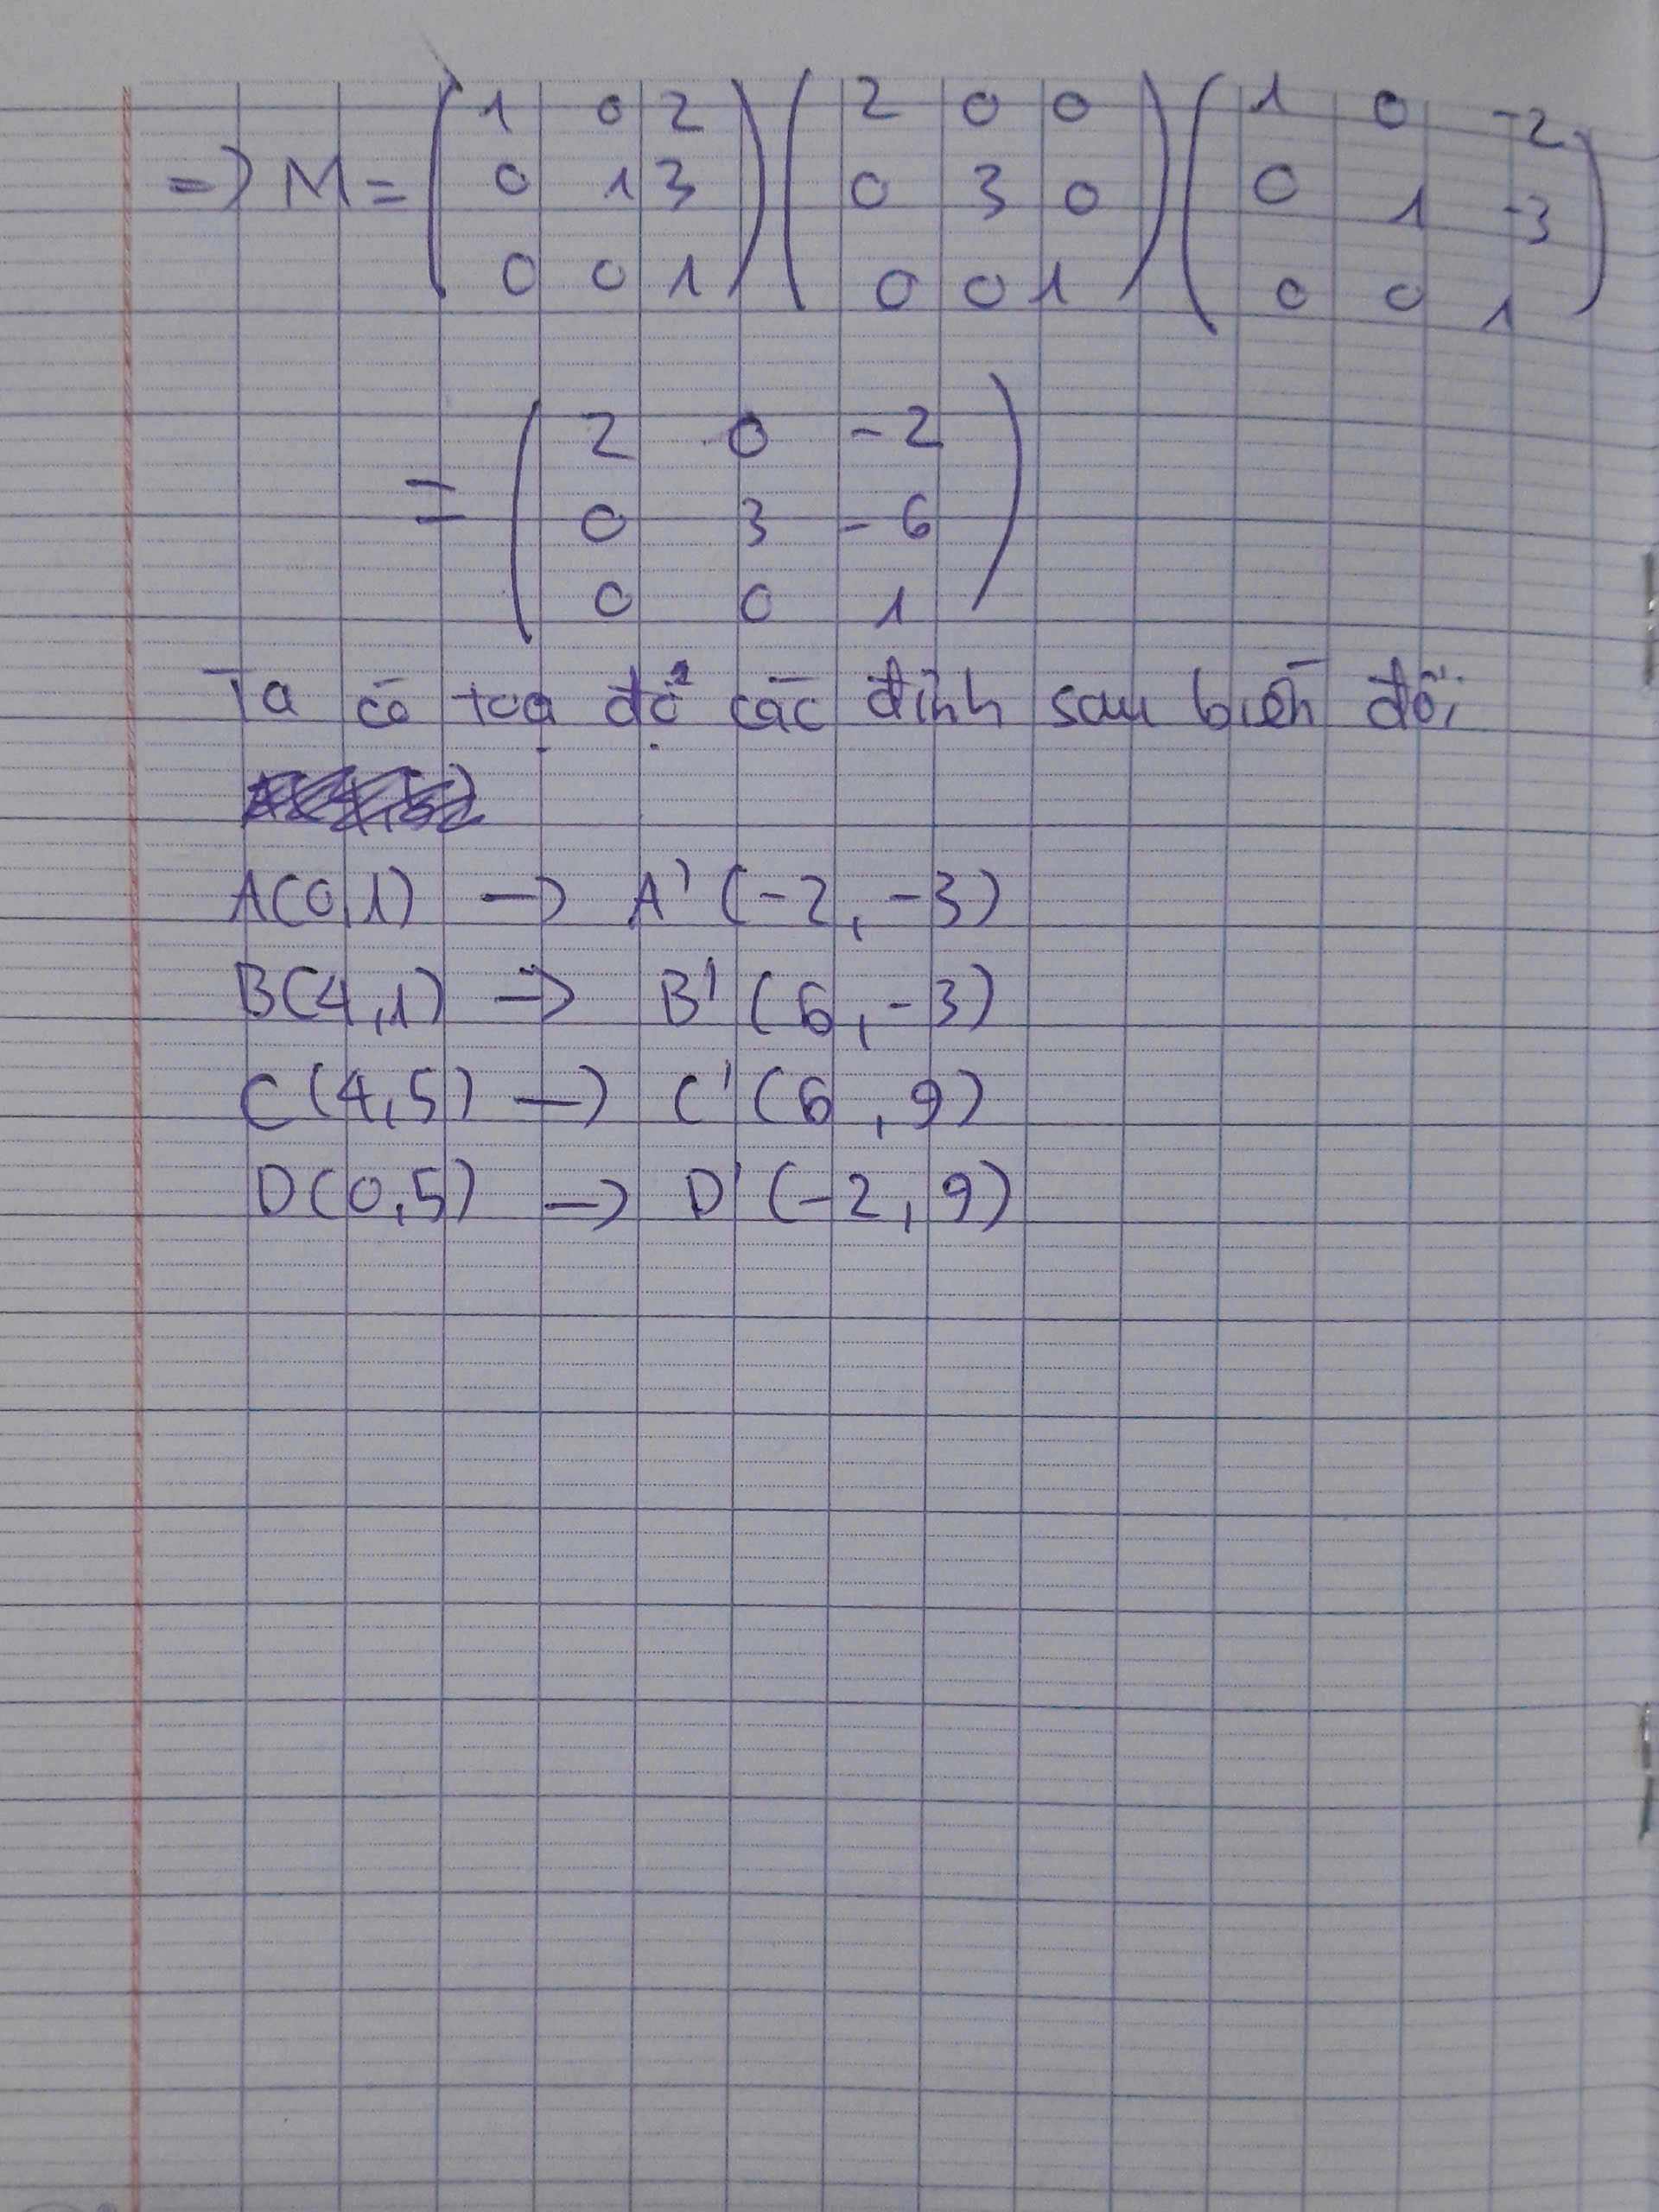 => M = ( 1 0 2 ) ( 2 0 0 ) ( 1 0 -2 )
( 0 1 3 ) ( 0 3 0 ) ( 0 1 -3 )
( 0 0 1 ) ( 0 0 1 ) ( 0 0 1 )
= ( 2 0 -2 )
( 0 3 -6 )
( 0 0 1 )
Ta có toạ độ các đỉnh sau biến đổi
A(0,1) -> A' (-2, -3)
B(4,1) -> B' (6, -3)
C(4,5) -> C' (6, 9)
D(0,5) -> D' (-2, 9)